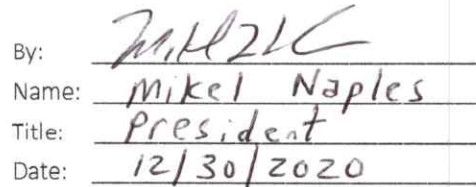 By:
Name: Mikel Naples
Title: President
Date: 12/30/2020